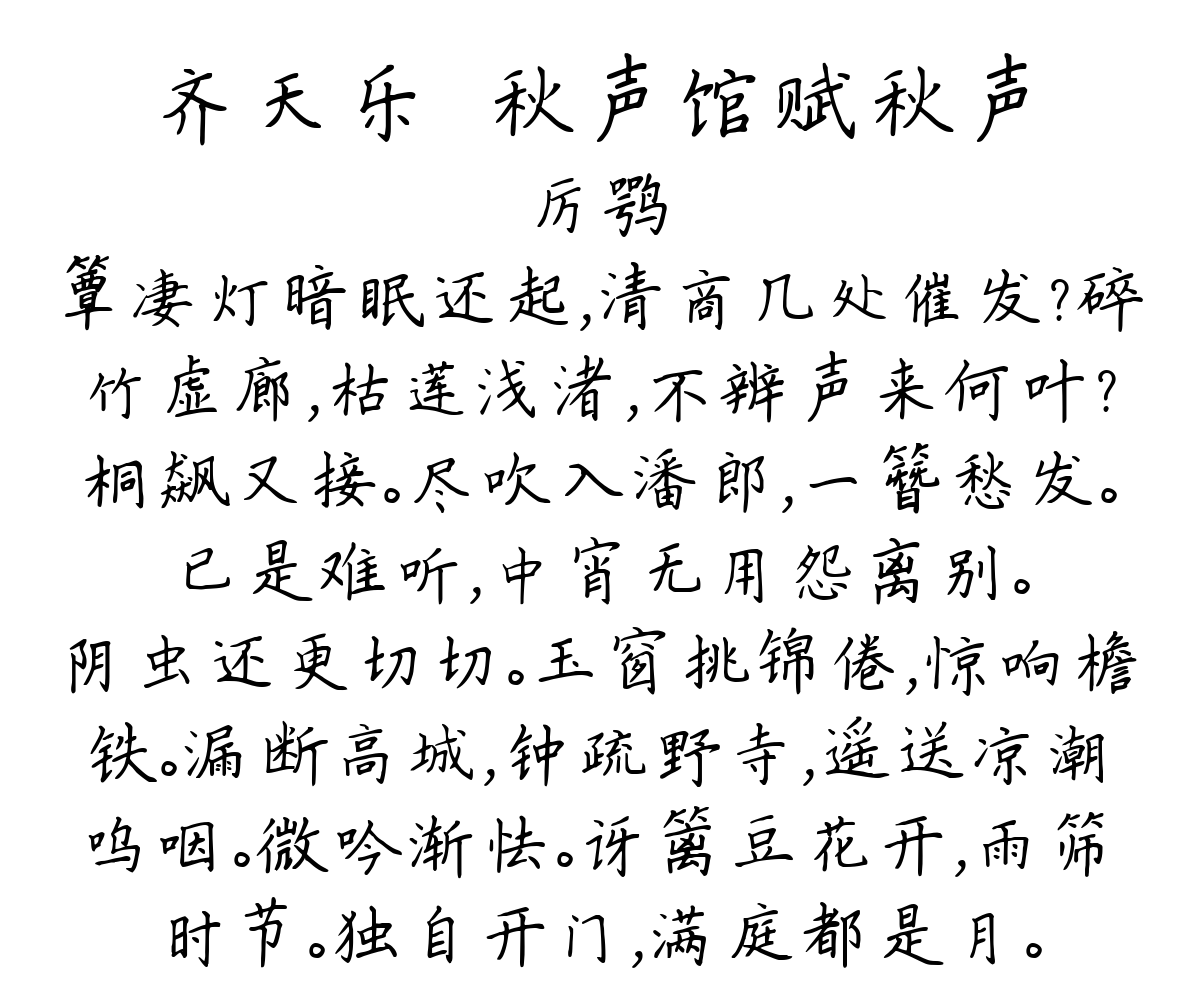 齐天乐 秋声馆赋秋声
厉鹗
簟凄灯暗眠还起,清商几处催发?碎
竹虚廊,枯莲浅渚,不辨声来何叶?
桐飙又接。尽吹入潘郎,一簪愁发。
已是难听,中宵无用怨离别。
阴虫还更切切。玉窗挑锦倦,惊响檐
铁。漏断高城,钟疏野寺,遥送凉潮
呜咽。微吟渐怯。讶篱豆花开,雨筛
时节。独自开门,满庭都是月。